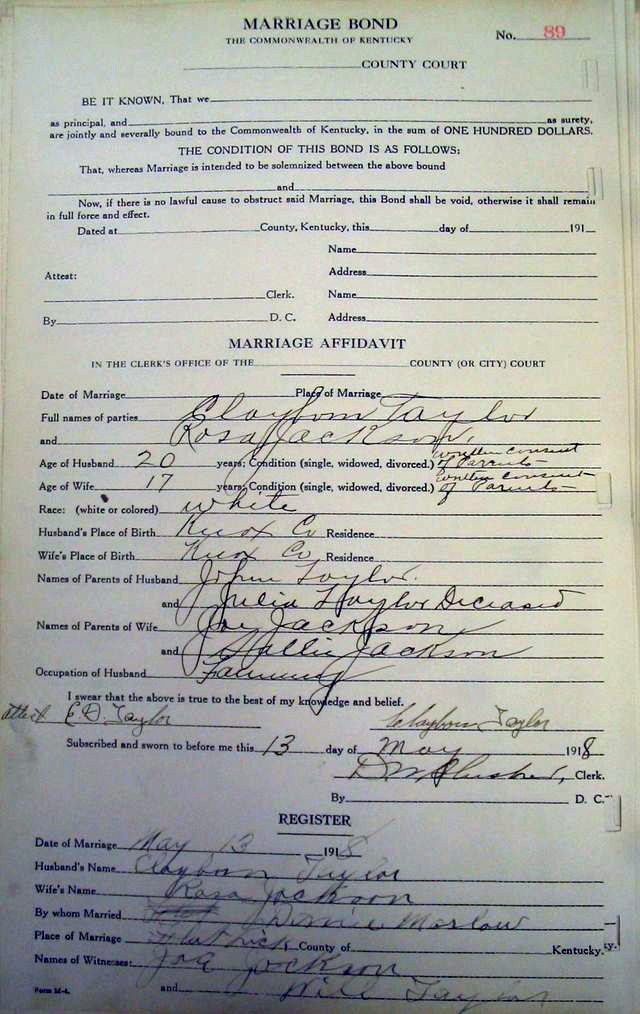 MARRIAGE BOND
THE COMMONWEALTH OF KENTUCKY
No. 89
COUNTY COURT
BE IT KNOWN, That we
as principal, and as surety,
are jointly and severally bound to the Commonwealth of Kentucky, in the sum of ONE HUNDRED DOLLARS.
THE CONDITION OF THIS BOND IS AS FOLLOWS:
That, whereas Marriage is intended to be solemnized between the above bound
and
Now, if there is no lawful cause to obstruct said Marriage, this Bond shall be void, otherwise it shall remain
in full force and effect.
Dated at County, Kentucky, this day of 191
Name
Attest: Address
Clerk. Name
By D. C. Address
MARRIAGE AFFIDAVIT
IN THE CLERK'S OFFICE OF THE COUNTY (OR CITY) COURT
Date of Marriage Place of Marriage
Full names of parties Clayborn Taylor
and Rosa Jackson,
Age of Husband 20 years; Condition (single, widowed, divorced.) written consent of Parents
Age of Wife 17 years; Condition (single, widowed, divorced.) written consent of Parents
Race: (white or colored) white
Husband's Place of Birth Knox Co Residence
Wife's Place of Birth Knox Co Residence
Names of Parents of Husband John Taylor.
and Julia Taylor Deceased
Names of Parents of Wife Joe Jackson
and Hallie Jackson
Occupation of Husband Farming
I swear that the above is true to the best of my knowledge and belief.
attest E. D. Taylor Clayborn Taylor
Subscribed and sworn to before me this 13 day of May 1918
Clerk.
By D. C.
REGISTER
Date of Marriage May 13 1918
Husband's Name Clayborn Taylor
Wife's Name Rosa Jackson
By whom Married Marlow
Place of Marriage County of Kentucky.
Names of Witnesses: Joe Jackson
Form M-4. and Will Taylor